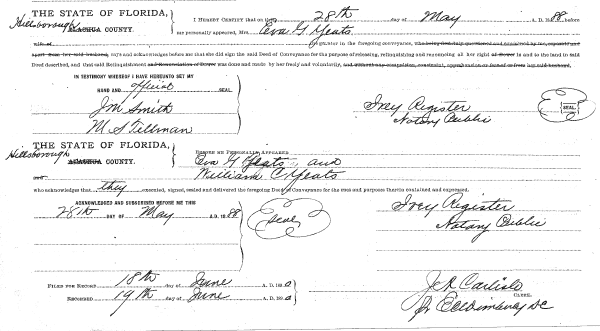 THE STATE OF FLORIDA,
Hillsborough ALACHUA COUNTY.
I HEREBY CERTIFY that on this 28th day of May A. D. 1888 before
me personally appeared, Mrs. Eva G Yeats
wife of grantor in the foregoing conveyance, who being
apart from her said husband, says and acknowledges before me that she did sign the said Deed of Conveyance for the purpose of releasing, relinquishing and renouncing all her right of Dower in and to the land in said
Deed described, and that said Relinquishment and Renunciation of Dower was done and made by her freely and voluntarily, and without any compulsion, constraint, apprehension or fear of or from her said husband.
IN TESTIMONY WHEREOF I HAVE HEREUNTO SET MY
HAND AND official SEAL
J M Smith
M S Tillman
Ivey Register
Notary Public
SEAL
THE STATE OF FLORIDA,
Hillsborough ALACHUA COUNTY.
BEFORE ME PERSONALLY APPEARED
Eva G Yeats and
and William C Yeats
who acknowledges that they executed, signed, sealed and delivered the foregoing Deed of Conveyance for the uses and purposes therein contained and expressed.
ACKNOWLEDGED AND SUBSCRIBED BEFORE ME THIS
28th DAY OF May A.D. 1888
Seal
Ivey Register
Notary Public
FILED FOR RECORD 18th day of June A. D. 1890
RECORDED 19th day of June A. D. 1890
J A Carlisle
CLERK.